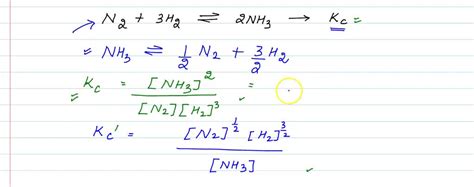 N₂ + 3H₂ ⇌ 2NH₃ → Kc =
= NH₃ ⇌ 1/2 N₂ + 3/2 H₂
= Kc = [NH₃]² / [N₂][H₂]³ ✓ =
Kc' = [N₂]^1/2 [H₂]^3/2 / [NH₃] ✓